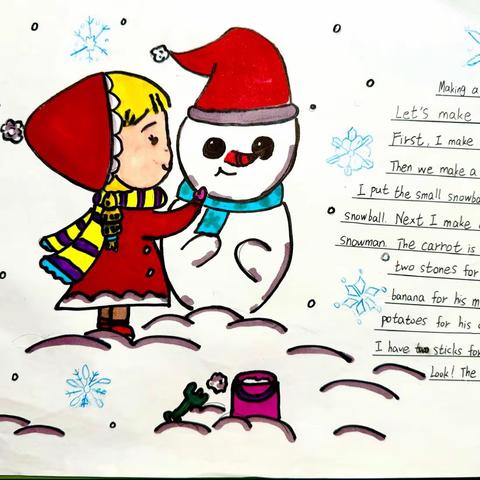 Making a
Let's make
First, I make
Then we make a
I put the small snowba
snowball. Next I make
snowman. The carrot is
two stones for
banana for his m
potatoes for his
I have two sticks for
Look! The